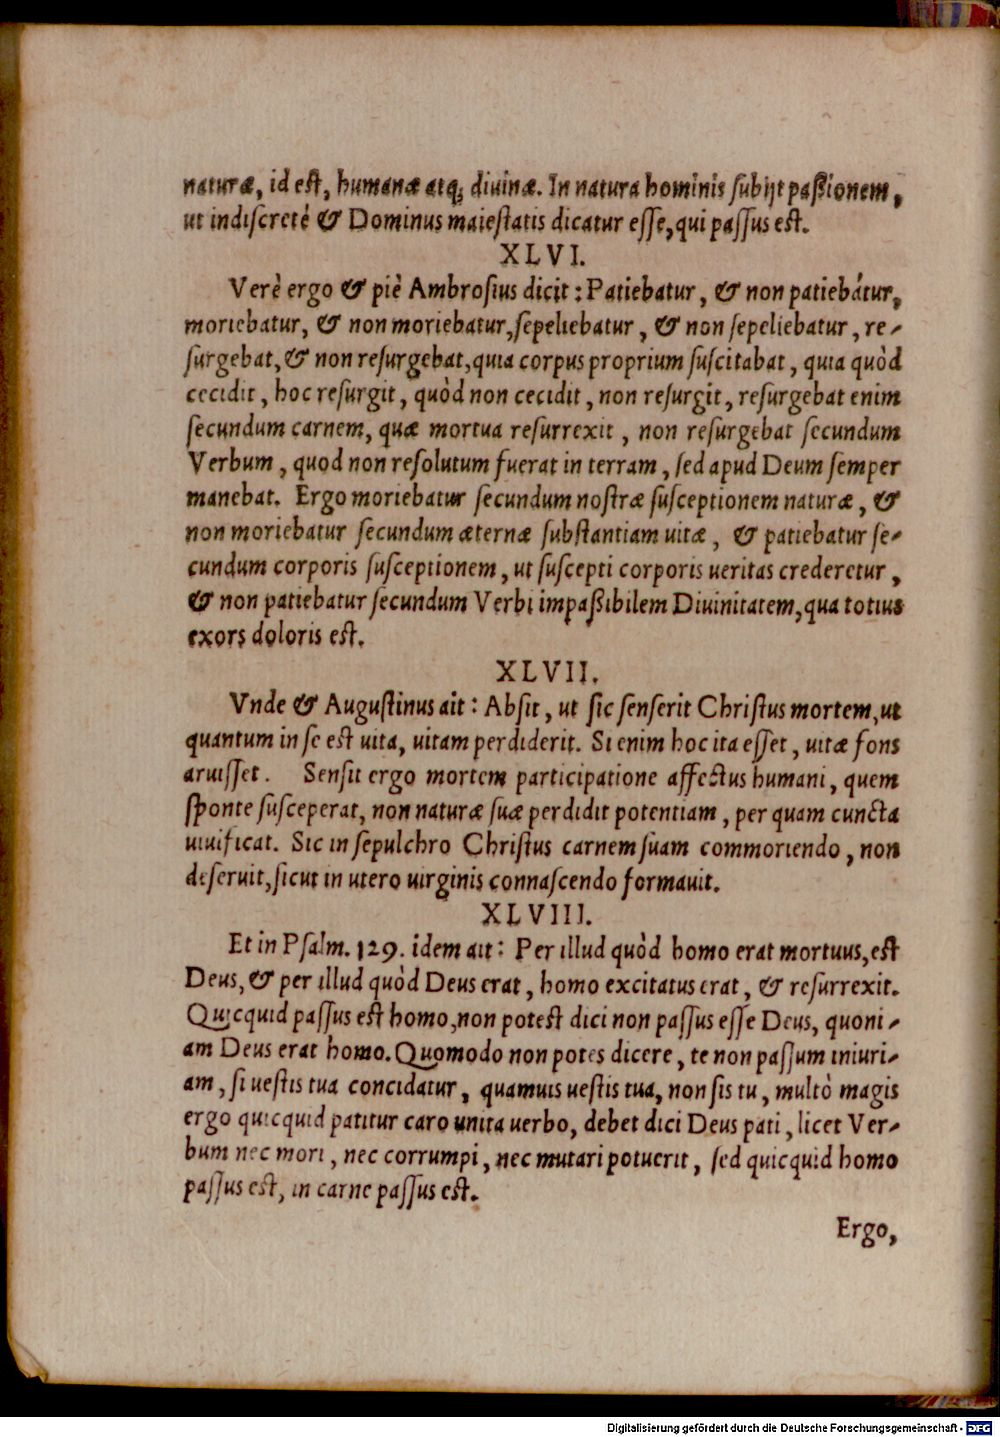 naturæ, id est, humanæ atq; diuinæ. In natura hominis subijt paßionem,
ut indiscretè & Dominus maiestatis dicatur esse, qui passus est.
XLVI.
Verè ergo & piè Ambrosius dicit: Patiebatur, & non patiebátur,
moriebatur, & non moriebatur, sepeliebatur, & non sepeliebatur, re-
surgebat, & non resurgebat, quia corpus proprium suscitabat, quia quòd
cecidit, hoc resurgit, quòd non cecidit, non resurgit, resurgebat enim
secundum carnem, quæ mortua resurrexit, non resurgebat secundum
Verbum, quod non resolutum fuerat in terram, sed apud Deum semper
manebat. Ergo moriebatur secundum nostræ susceptionem naturæ, &
non moriebatur secundum æternæ substantiam uitæ, & patiebatur se-
cundum corporis susceptionem, ut suscepti corporis ueritas crederetur,
& non patiebatur secundum Verbi impaßibilem Diuinitatem, qua totius
exors doloris est.
XLVII.
Vnde & Augustinus ait: Absit, ut sic senserit Christus mortem, ut
quantum in se est uita, uitam perdiderit. Si enim hoc ita esset, uitæ fons
aruisset. Sensit ergo mortem participatione affectus humani, quem
sponte susceperat, non naturæ suæ perdidit potentiam, per quam cuncta
uiuificat. Sic in sepulchro Christus carnem suam commoriendo, non
deseruit, sicut in utero uirginis connascendo formauit.
XLVIII.
Et in Psalm. 129. idem ait: Per illud quòd homo erat mortuus, est
Deus, & per illud quòd Deus erat, homo excitatus erat, & resurrexit.
Quicquid passus est homo, non potest dici non passus esse Deus, quoni-
am Deus erat homo. Quomodo non potes dicere, te non passum iniuri-
am, si uestis tua concidatur, quamuis uestis tua, non sis tu, multò magis
ergo quicquid patitur caro unita uerbo, debet dici Deus pati, licet Ver-
bum nec mori, nec corrumpi, nec mutari potuerit, sed quicquid homo
passus est, in carne passus est.
Ergo,
Digitalisierung gefördert durch die Deutsche Forschungsgemeinschaft - DFG